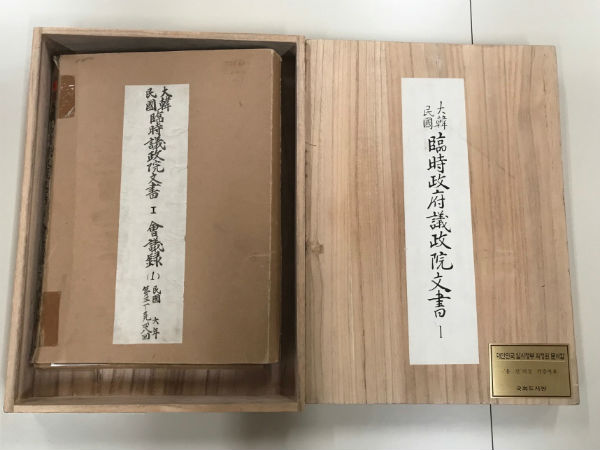 大韓
民國
臨時議政院文書 I 會議録
(1)
民國 六年
大韓
民國
臨時政府議政院文書 I
대한민국 임시정부 의정원 문서함
국회도서관